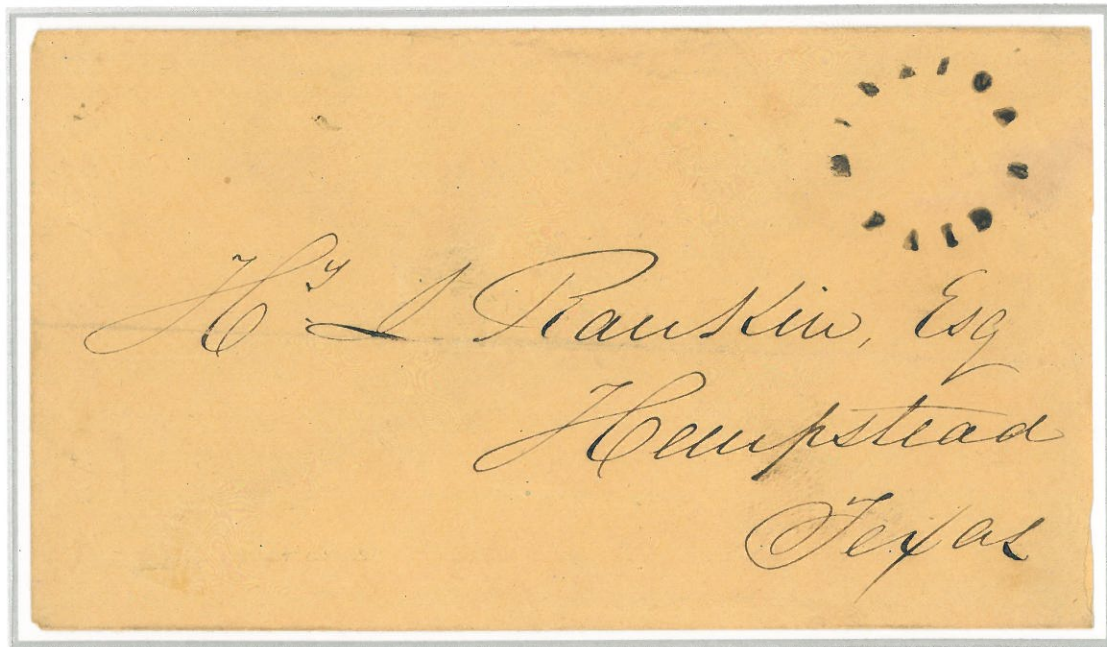 Hy S Rankin, Esq
Hempstead
Texas